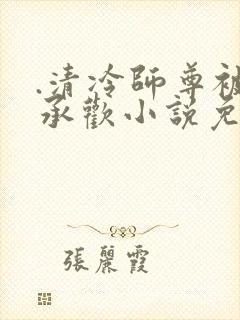 .清冷師尊被
承歡小說免
張麗霞